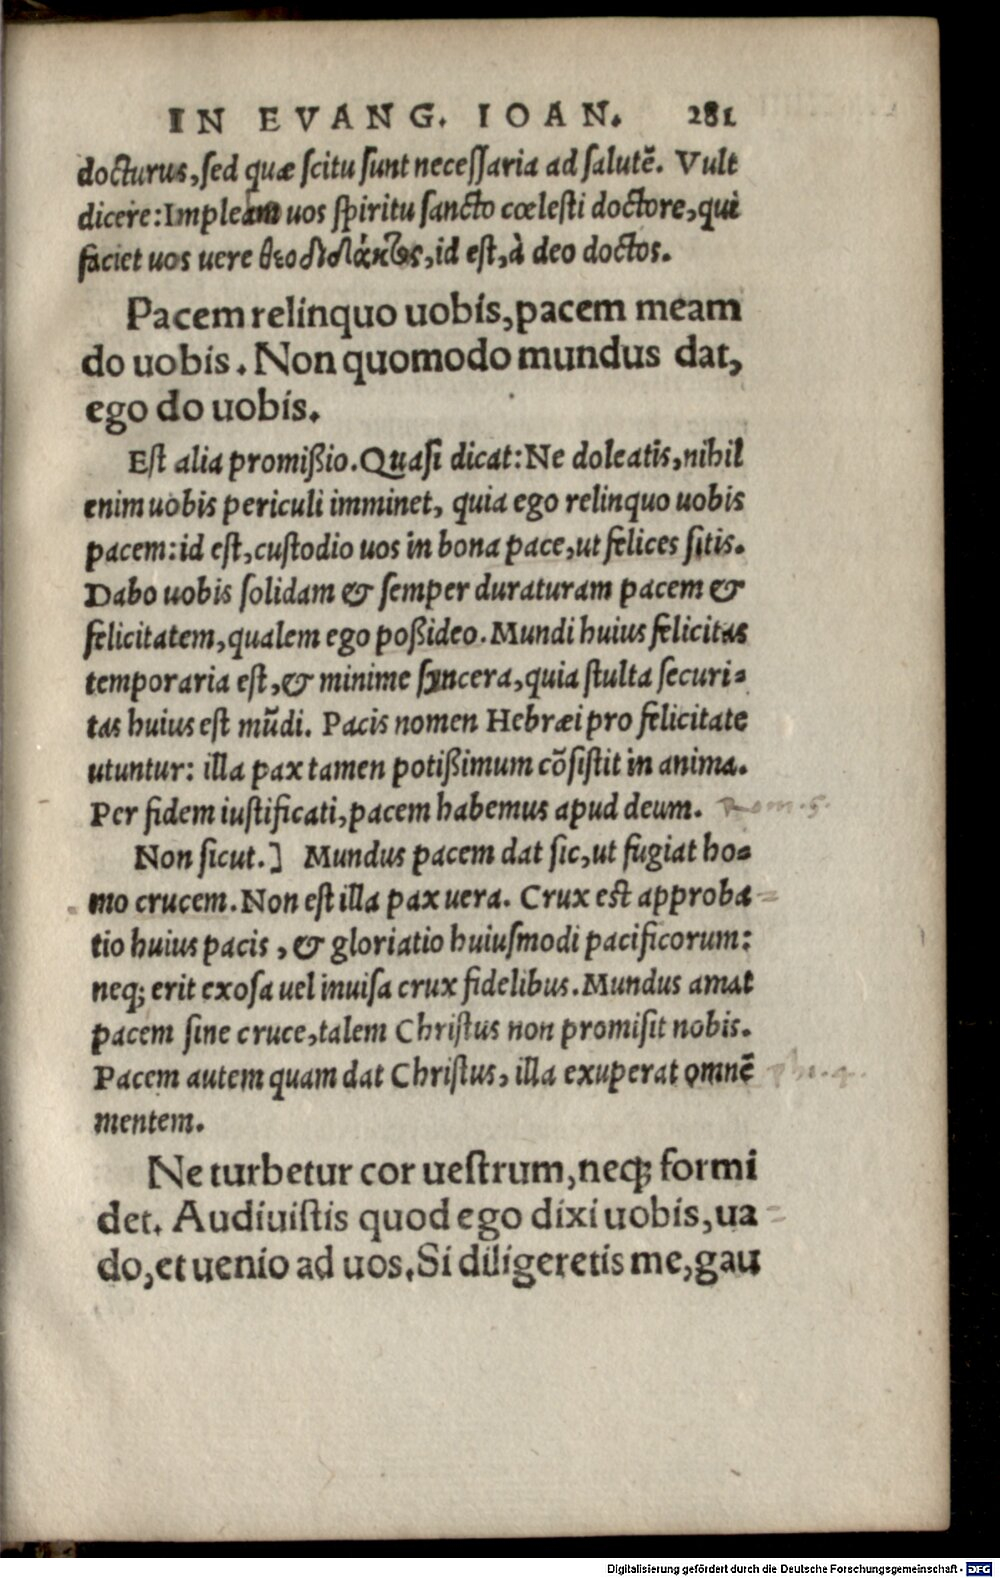 IN EVANG. IOAN. 281
docturus, sed quæ scitu sunt necessaria ad salutē. Vult
dicere: Impleam uos spiritu sancto cœlesti doctore, qui
faciet uos uere θεοδιδάκτους, id est, à deo doctos.
Pacem relinquo uobis, pacem meam
do uobis. Non quomodo mundus dat,
ego do uobis.
Est alia promißio. Quasi dicat: Ne doleatis, nihil
enim uobis periculi imminet, quia ego relinquo uobis
pacem: id est, custodio uos in bona pace, ut felices sitis.
Dabo uobis solidam & semper duraturam pacem &
felicitatem, qualem ego poßideo. Mundi huius felicitas
temporaria est, & minime syncera, quia stulta securi-
tas huius est mūdi. Pacis nomen Hebræi pro felicitate
utuntur: illa pax tamen potißimum cōsistit in anima.
Per fidem iustificati, pacem habemus apud deum. Rom. 5.
Non sicut.] Mundus pacem dat sic, ut fugiat ho-
mo crucem. Non est illa pax uera. Crux est approba=
tio huius pacis, & gloriatio huiusmodi pacificorum:
neq; erit exosa uel inuisa crux fidelibus. Mundus amat
pacem sine cruce, talem Christus non promisit nobis.
Pacem autem quam dat Christus, illa exuperat omnē Phi. 4.
mentem.
Ne turbetur cor uestrum, neq; formi
det. Audiuistis quod ego dixi uobis, ua=
do, et uenio ad uos. Si diligeretis me, gau
Digitalisierung gefördert durch die Deutsche Forschungsgemeinschaft - DFG